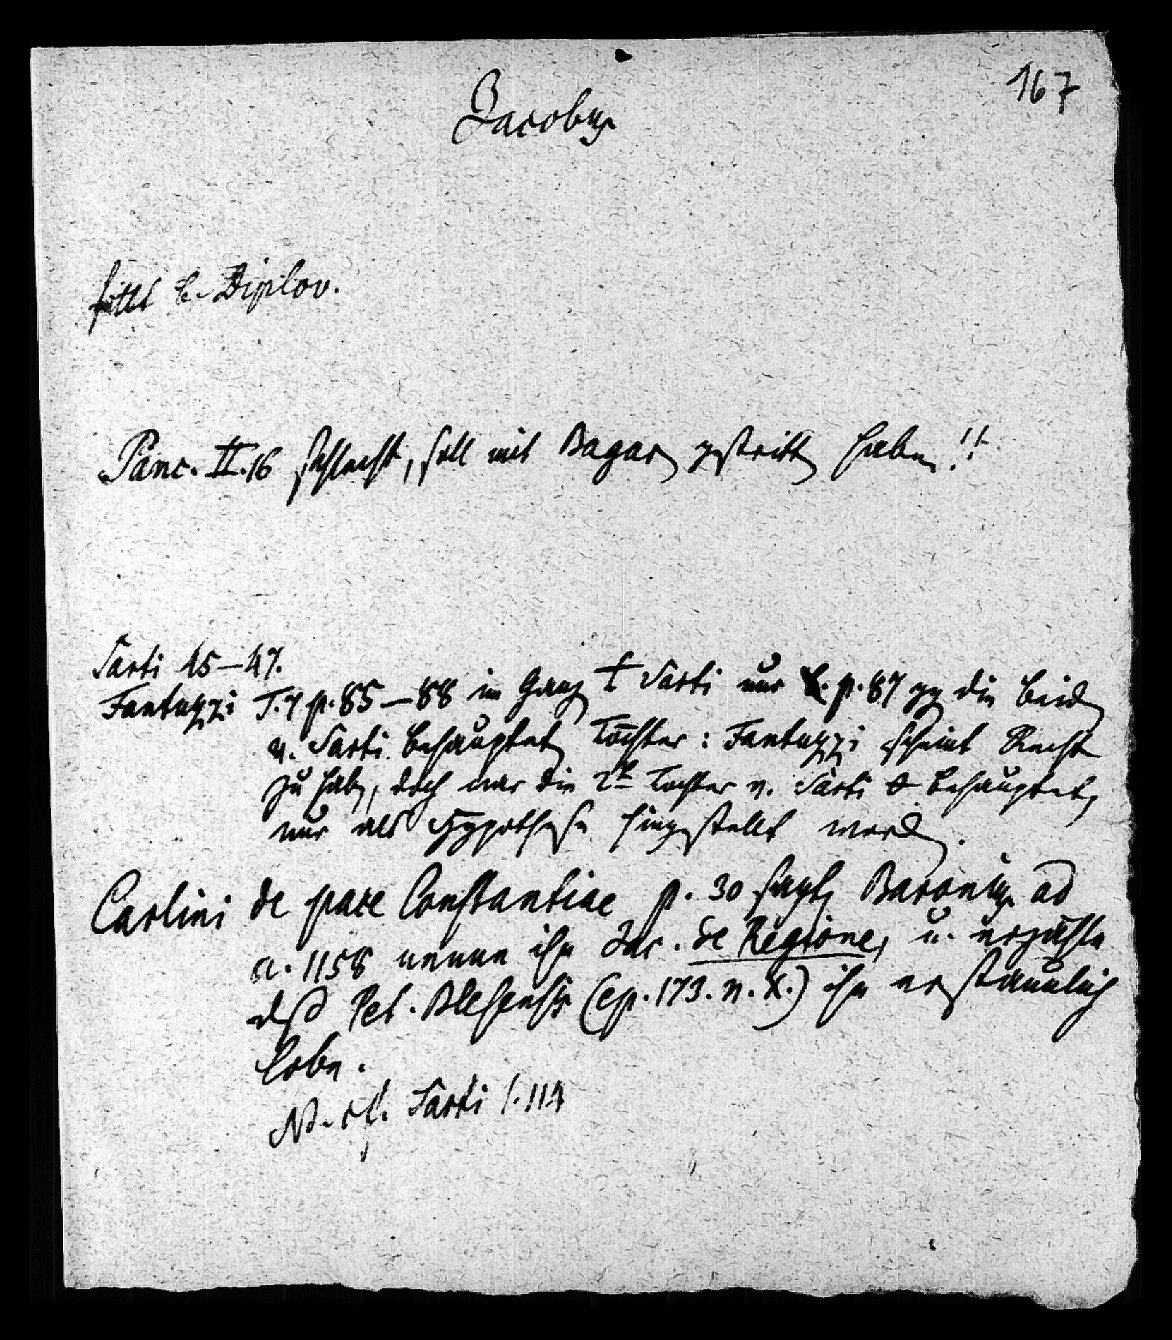 167
Jacobus
fehlt b. Diplov.
Panc. II.16 schlecht, soll mit Bagar. gestritten haben!!
Sarti 45–47.
Fantuzzi T.4 p.85–88 im Ganzen Sarti nur p.87 gg die beiden
v. Sarti behaupteten Töchter: Fantuzzi scheint Recht
zu haben, doch war die 2te Tochter v. Sarti behauptet,
nur als Hypothese hingestellt worden.
Carlini de pace Constantiae p. 30 sagt, Baronius ad
a. 1158 nenne ihn Jac. de Regione, u. erzähle
daß Pet. Blesensis (ep. 173. n. X.) ihn erstaunlich
lobe.
NB. cf. Sarti 114